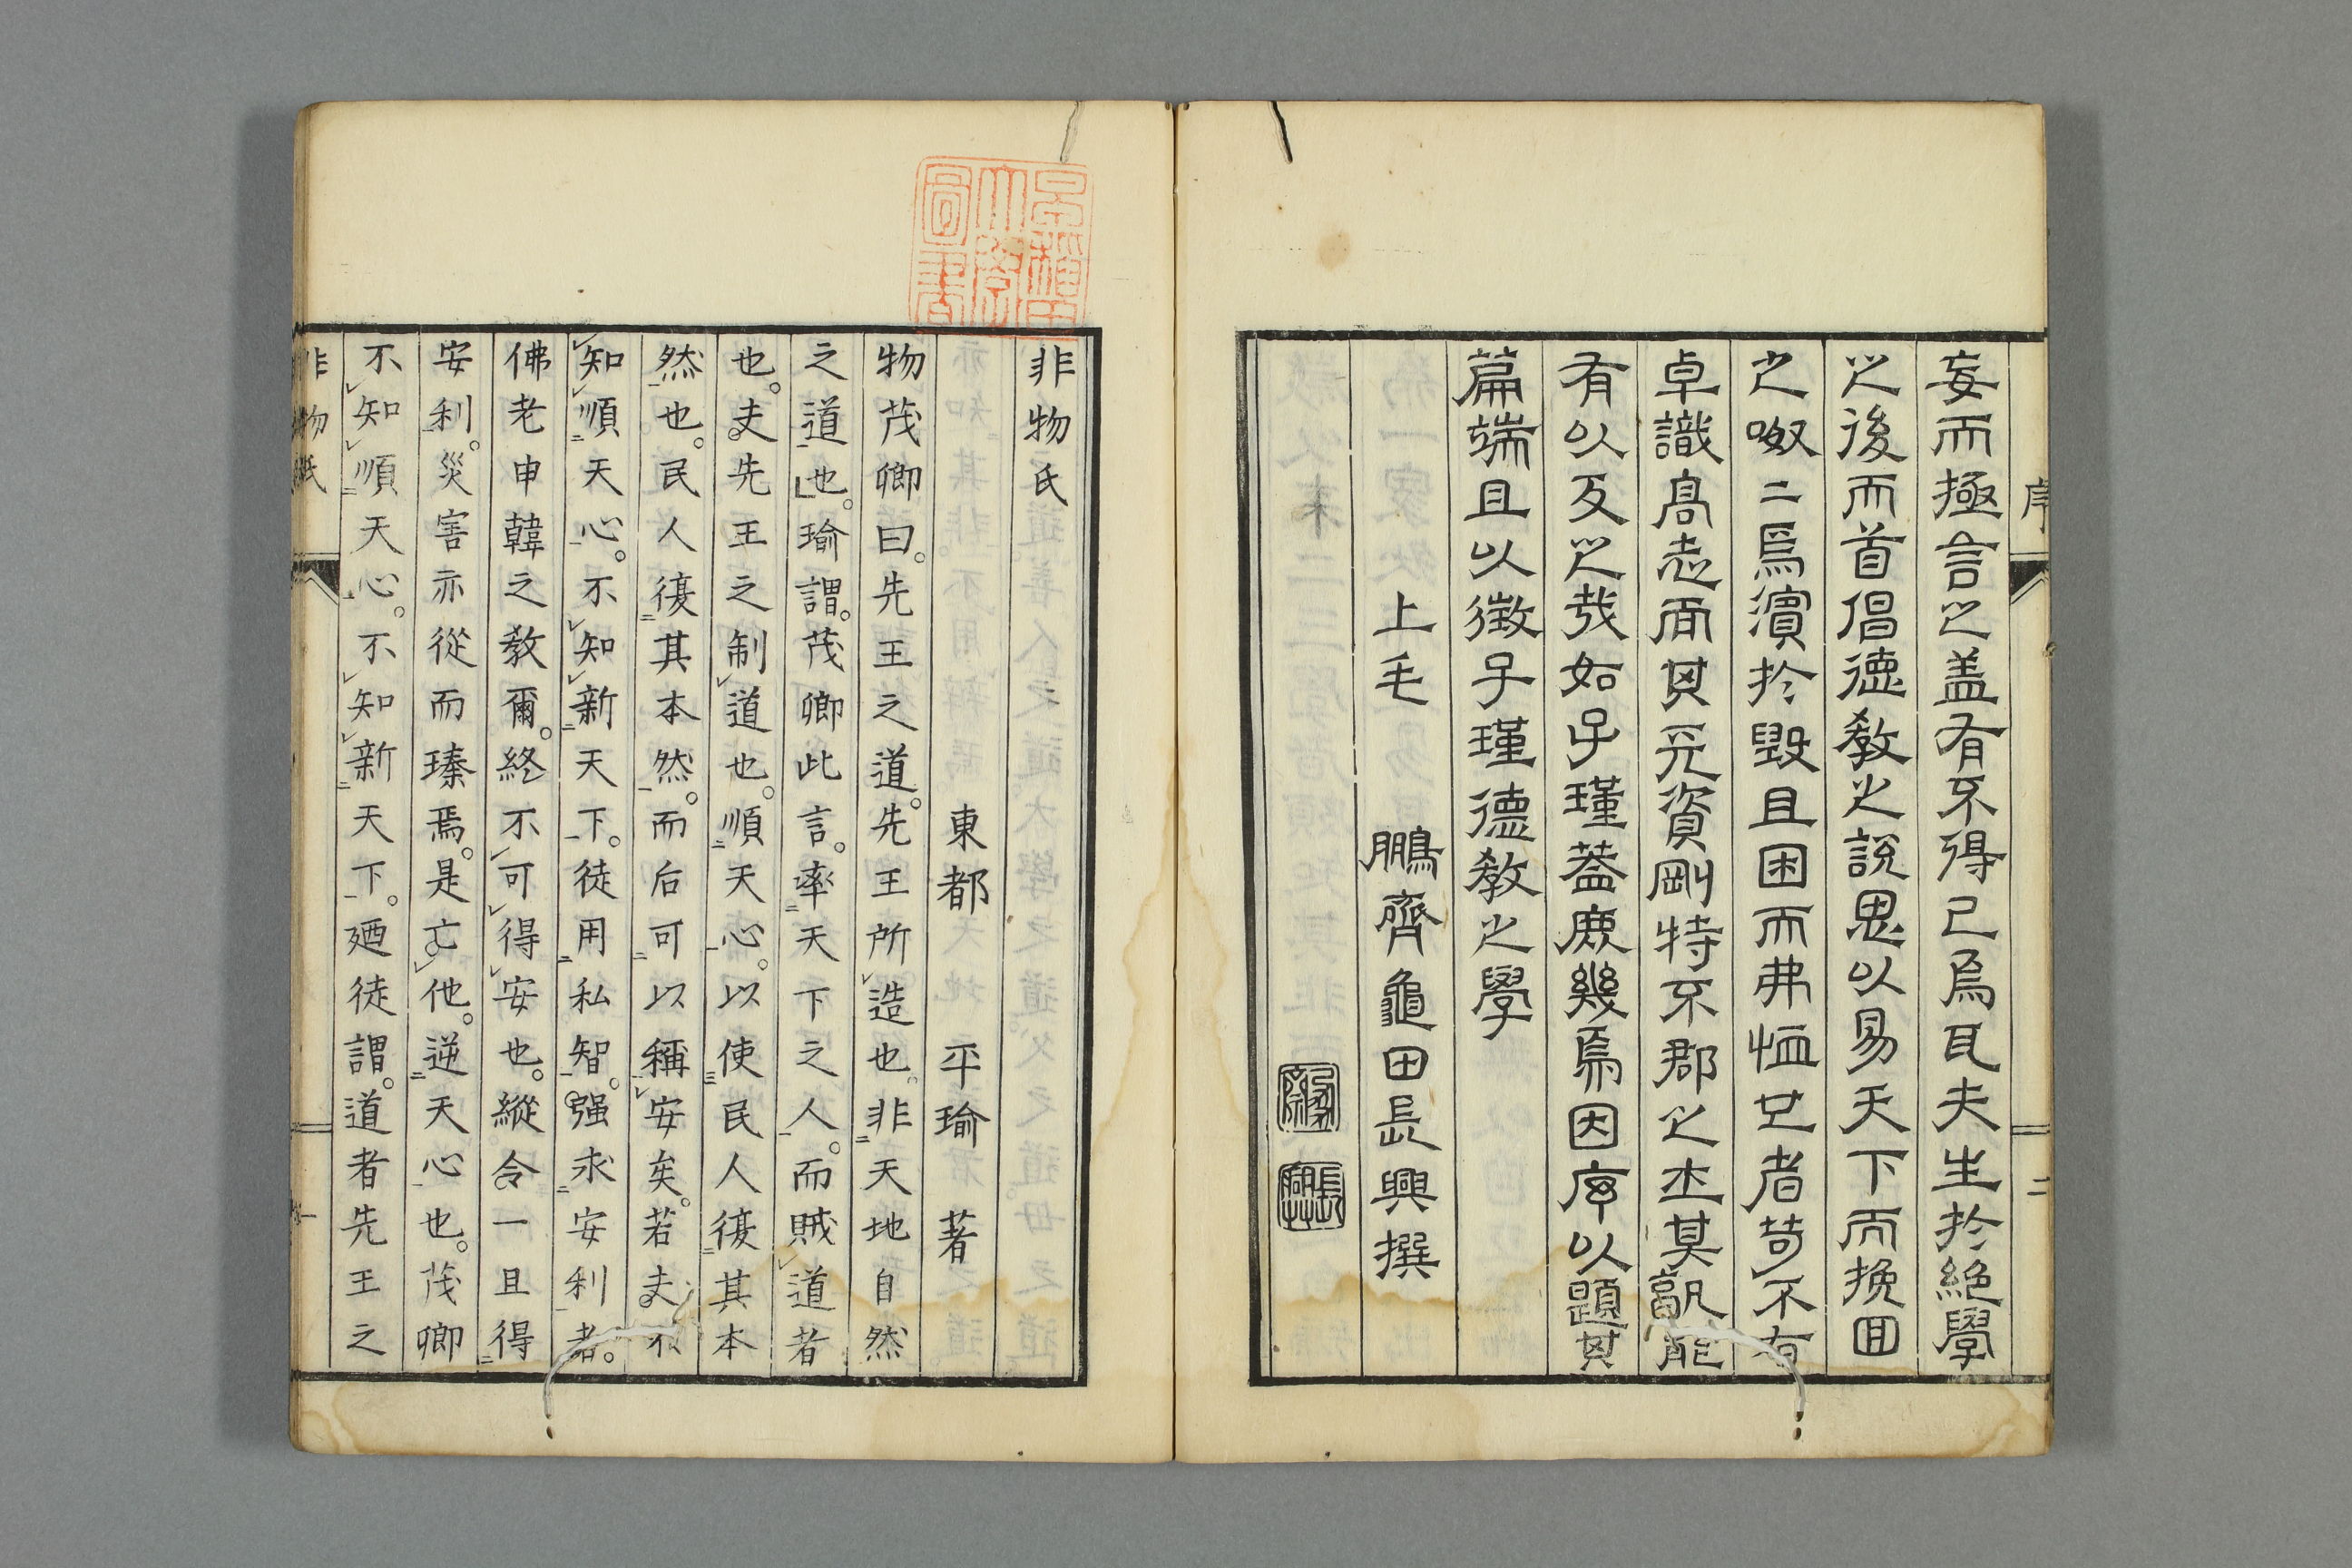 序
二
妄而極言之盖有不得已焉且夫生於絕學
之後而首倡德教之說思以易天下而挽囬
之呶二焉濱於毀且困而弗恤也者苟不有
卓識高志而其元資剛特不郡之士其孰能
有以及之哉如子瑾蓋庶幾焉因序以題其
篇端且以徵子瑾德教之學
上毛 鵬齊龜田長興撰
早稻田大學圖書
非物氏
東都 平瑜 著
物茂卿曰。先王之道。先王所造也。非天地自然
之道也。瑜謂。茂卿此言。率天下之人。而賊道者
也。夫先王之制道也。順天心。以使民人復其本
然也。民人復其本然。而后可以稱安矣。若夫不
知順天心。不知新天下。徒用私智。强求安利者。
佛老申韓之教爾。終不可得安也。縱令一旦得
安利。災害亦從而瑧焉。是亡他。逆天心也。茂卿
不知順天心。不知新天下。廼徒謂。道者先王之
非物氏
一